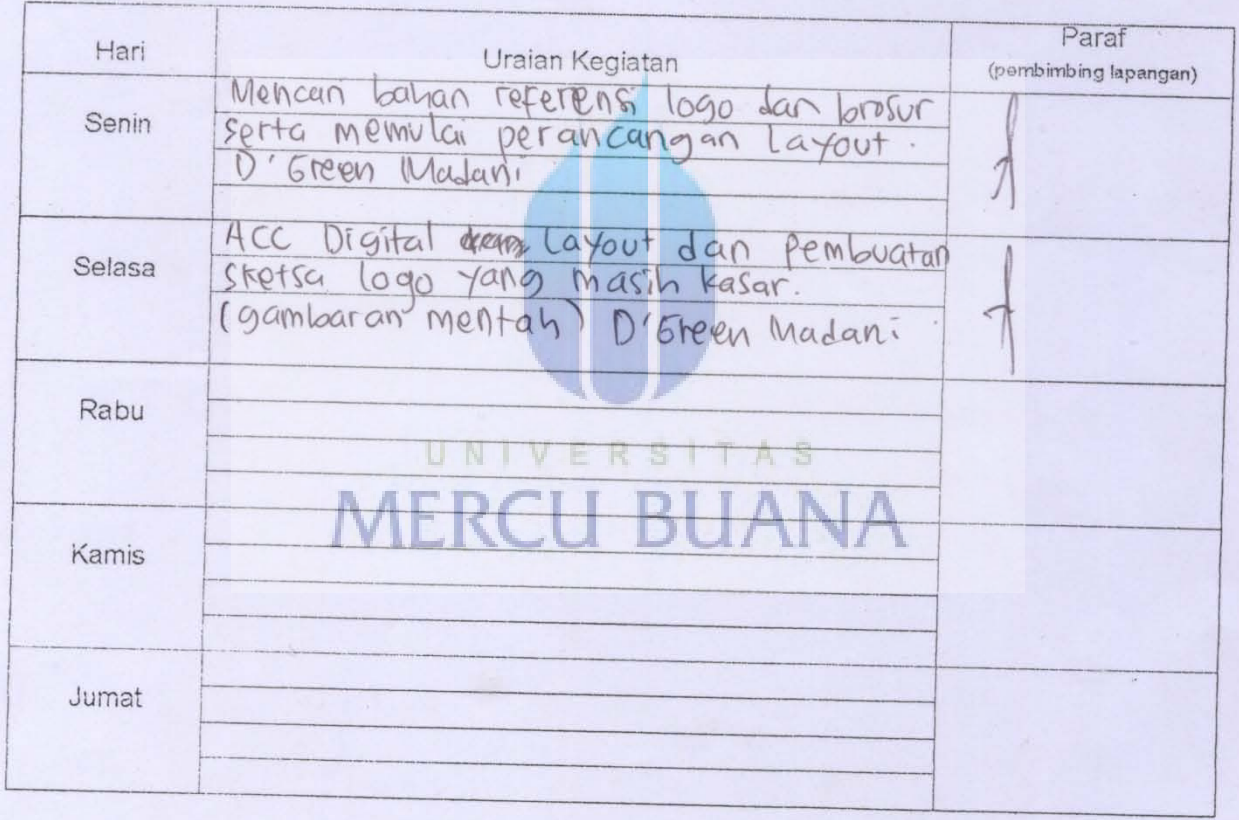 Hari Uraian Kegiatan Paraf
(pembimbing lapangan)
Senin
Mencari bahan referensi logo dan brosur
serta memulai perancangan Layout.
D'Green Madani
Selasa
ACC Digital Layout dan Pembuatan
sketsa logo yang masih kasar.
(gambaran mentah) D'Green Madani
Rabu
UNIVERSITAS
MERCU BUANA
Kamis
Jumat